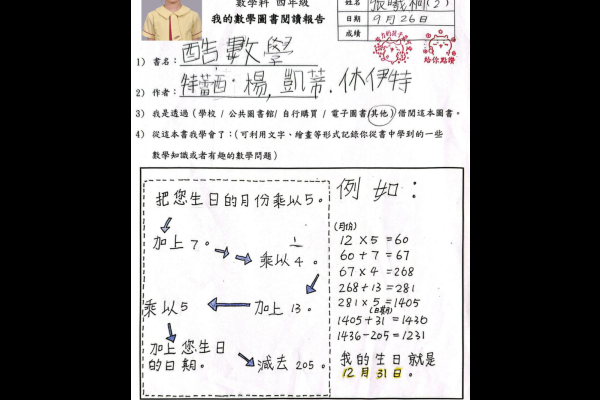 數學科 四年級
我的數學圖書閱讀報告
姓名 張曦桐(2)
日期 9月26日
成績
給你點讚
1) 書名: 酷數學
2) 作者: 特蕾西·楊,凱蒂.休伊特
3) 我是透過(學校 / 公共圖書館/ 自行購買 / 電子圖書/其他)借閱這本圖書。
4) 從這本書我學會了:(可利用文字、繪畫等形式記錄你從書中學到的一些
數學知識或者有趣的數學問題)
把您生日的月份乘以5。
加上7。
乘以4。
加上13。
乘以5
加上您生日
的日期。
減去205。
例如:
(月份)
12×5=60
60+7=67
67×4=268
268+13=281
281×5=1405
(日期)
1405+31=1436
1436-205=1231
我的生日就是
12月31日。